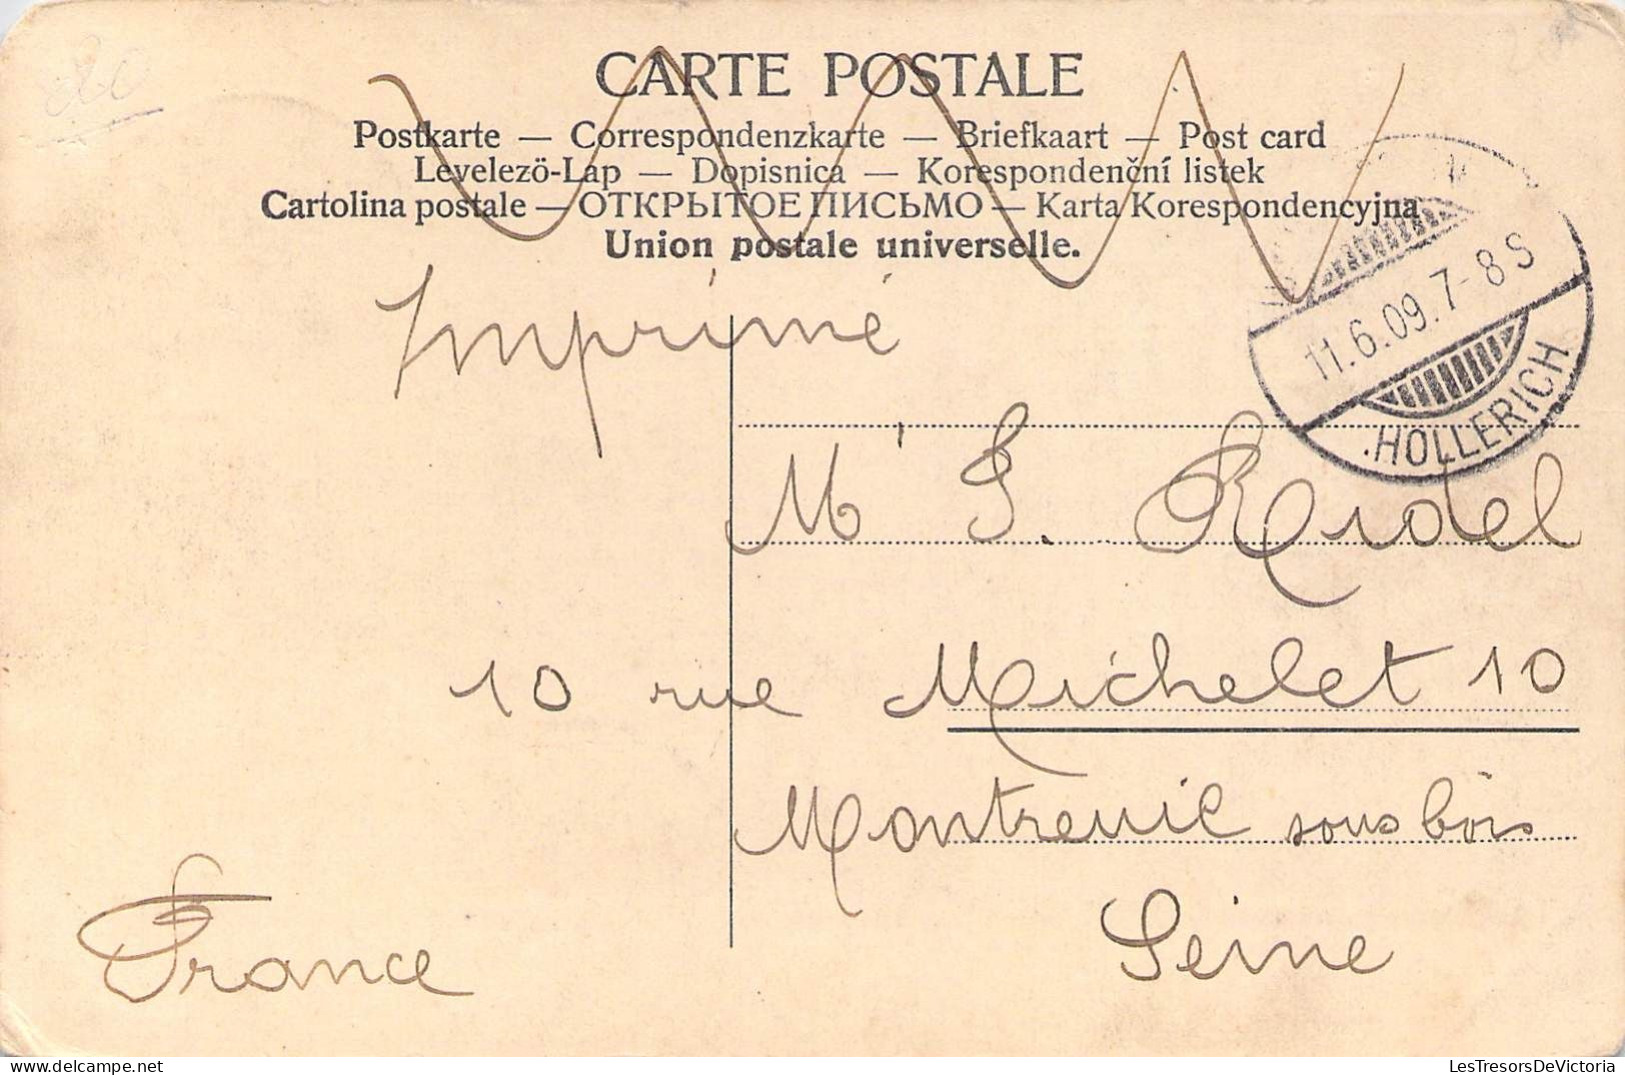 CARTE POSTALE
Postkarte — Correspondenzkarte — Briefkaart — Post card
Levelezö-Lap — Dopisnica — Korespondenční listek
Cartolina postale — ОТКРЫТОЕ ПИСЬМО — Karta Korespondencyjna
Union postale universelle.
Imprimé
11.6.09.7-8S
.HOLLERICH
M' S. Ridel
10 rue Michelet 10
Montreuil sous bois
Seine
France
LesTresorsDeVictoria